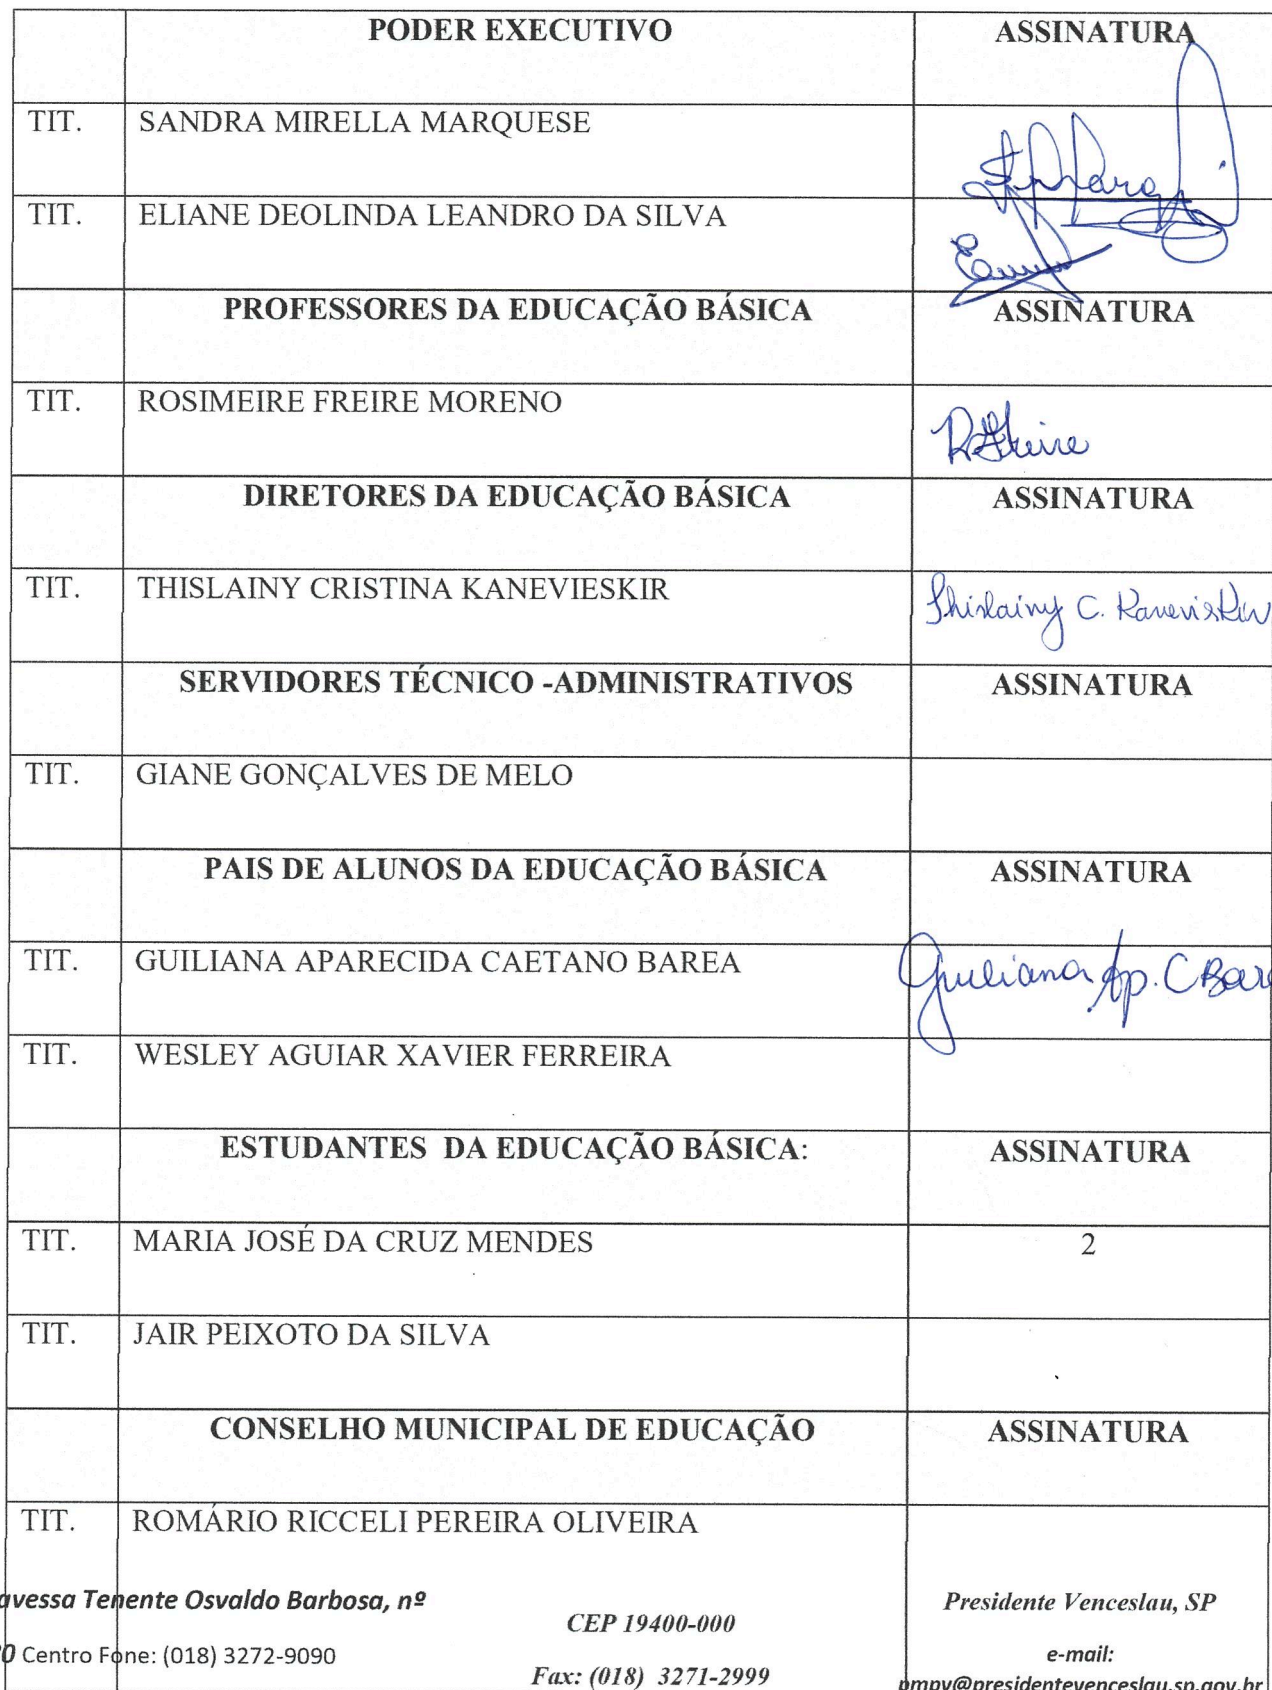 PODER EXECUTIVO ASSINATURA
TIT. SANDRA MIRELLA MARQUESE
TIT. ELIANE DEOLINDA LEANDRO DA SILVA
PROFESSORES DA EDUCAÇÃO BÁSICA ASSINATURA
TIT. ROSIMEIRE FREIRE MORENO RFreire
DIRETORES DA EDUCAÇÃO BÁSICA ASSINATURA
TIT. THISLAINY CRISTINA KANEVIESKIR Thislainy C. Kanevieskir
SERVIDORES TÉCNICO -ADMINISTRATIVOS ASSINATURA
TIT. GIANE GONÇALVES DE MELO
PAIS DE ALUNOS DA EDUCAÇÃO BÁSICA ASSINATURA
TIT. GUILIANA APARECIDA CAETANO BAREA Giuliana Ap. C Bare
TIT. WESLEY AGUIAR XAVIER FERREIRA
ESTUDANTES DA EDUCAÇÃO BÁSICA: ASSINATURA
TIT. MARIA JOSÉ DA CRUZ MENDES 2
TIT. JAIR PEIXOTO DA SILVA
CONSELHO MUNICIPAL DE EDUCAÇÃO ASSINATURA
TIT. ROMÁRIO RICCELI PEREIRA OLIVEIRA
avessa Tenente Osvaldo Barbosa, nº
CEP 19400-000
Presidente Venceslau, SP
0 Centro Fone: (018) 3272-9090
Fax: (018) 3271-2999
e-mail:
pmpv@presidentevenceslau.sp.gov.br